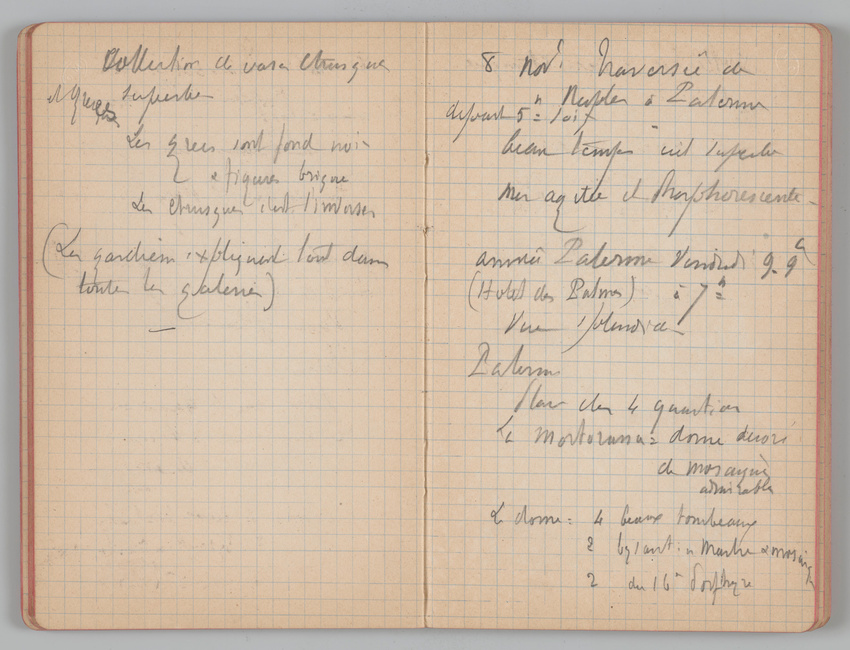 Collection de vases étrusques
et grecs superbe
Les grecs sont fond noir
à figures brique
Les étrusques c'est l'inverse
(Les gardiens expliquent tout dans
toutes les galeries)
8 nov. Traversée de
Naples à Palerme
départ 5h soir
beau temps ciel superbe
mer agitée et phosphorescente
arrivée Palerme Vendredi 9
(Hotel des Palmes) à 7h
Vue splendide
Palerme
Place des 4 quartiers
La Martorana = dome décoré
de mosaïques
admirables
Le dome = 4 beaux tombeaux
2 byzant. en marbre & mosaïque
2 du 16e Porphyre